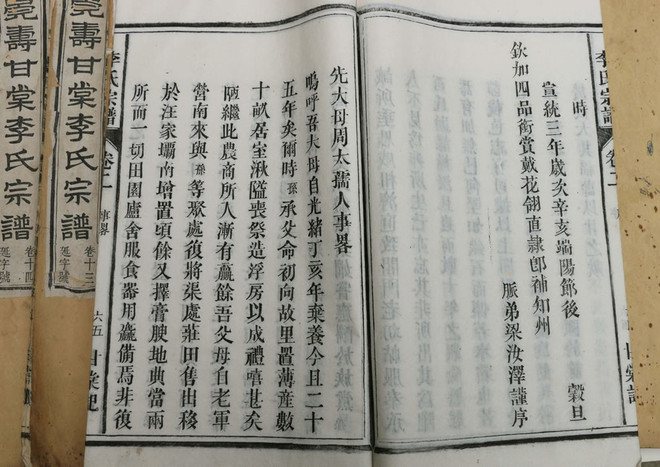 李氏宗譜 卷二
時
宣統三年歲次辛亥端陽節後 穀旦
欽加四品銜賞戴花翎直隸卽袖知州
脈弟梁汝澤謹序
先大母周太孺人事畧
嗚呼吾大母自光緖丁亥年棄養今且二十
五年矣爾時孫承父命初向故里置薄産數
十畝居室湫隘喪祭造浮房以成禮嘻甚矣
陋繼此農商所入漸有贏餘吾父母自老軍
營南來與孫等聚處復將渠處莊田售出移
於汪家壩南增置頃餘又擇膏腴地典當兩
所而一切田園廬舍服食器用麤備焉非復
李氏宗譜 卷二 事畧 六五 甘棠記
壽甘棠李氏宗譜 卷十三 廷字號
壽甘棠李氏宗譜 卷十四 廷字號